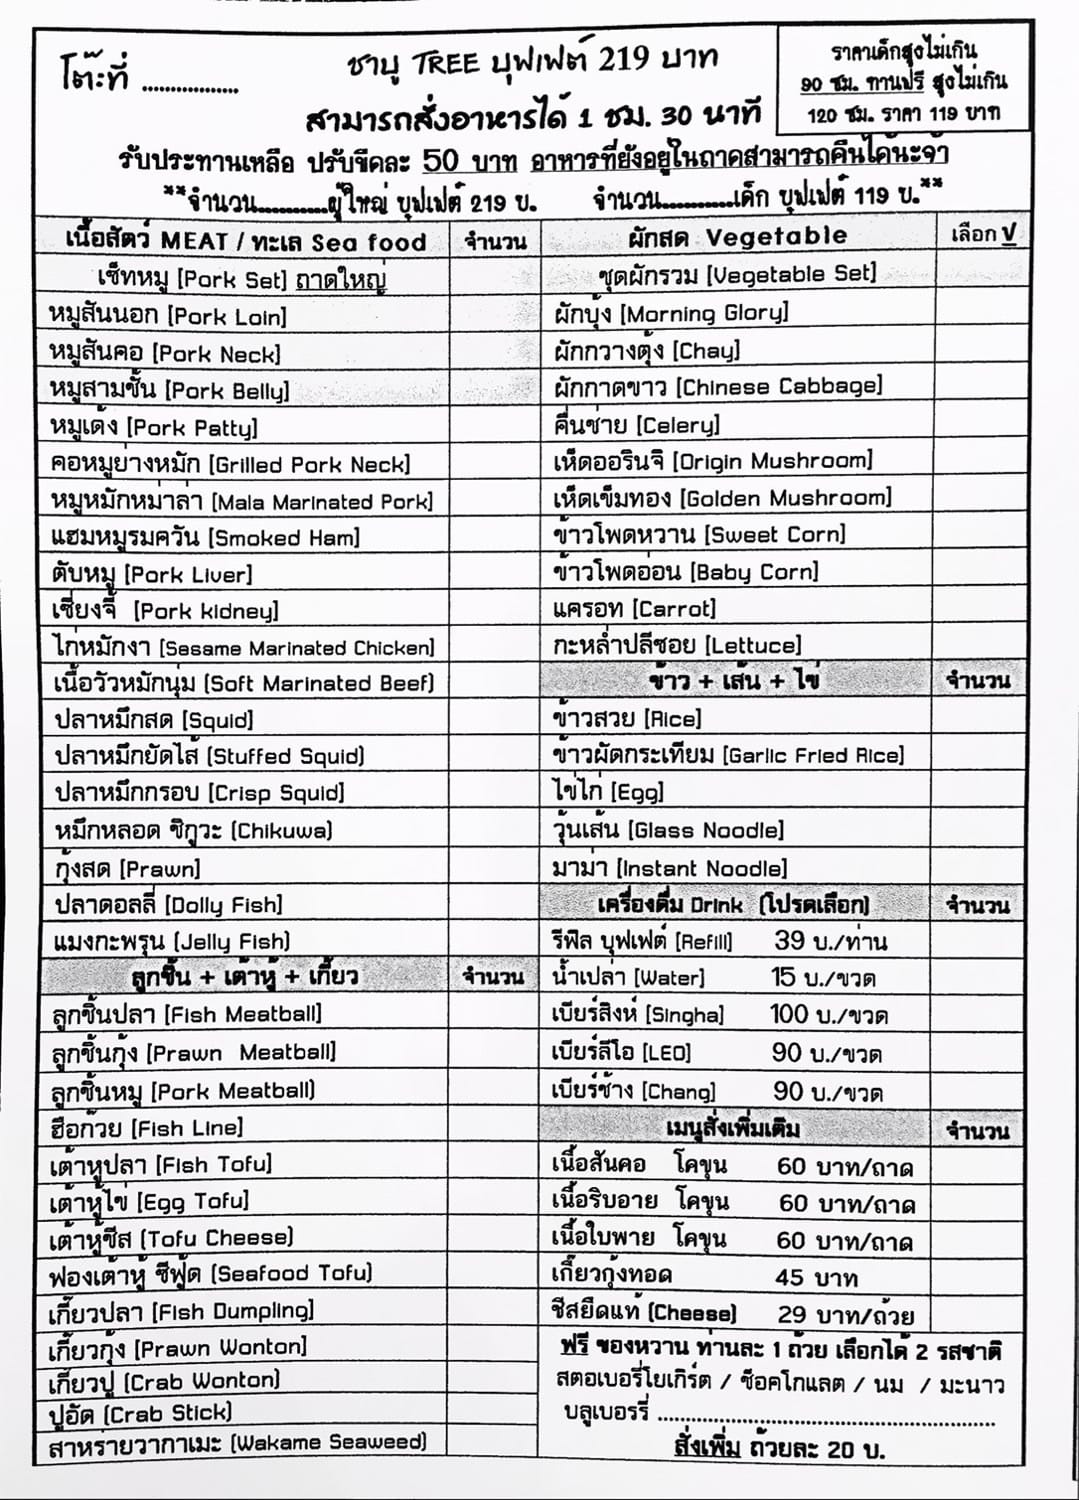 โต๊ะที่ .................
ชาบู TREE บุฟเฟต์ 219 บาท
สามารถสั่งอาหารได้ 1 ชม. 30 นาที
ราคาเด็กสูงไม่เกิน
90 ซม. ทานฟรี สูงไม่เกิน
120 ซม. ราคา 119 บาท
รับประทานเหลือ ปรับขีดละ 50 บาท อาหารที่ยังอยู่ในถาดสามารถคืนได้นะจ๊า
**จำนวน............ผู้ใหญ่ บุฟเฟต์ 219 บ. จำนวน............เด็ก บุฟเฟต์ 119 บ.**
เนื้อสัตว์ MEAT / ทะเล Sea food จำนวน
เซ็ทหมู [Pork Set] ถาดใหญ่
หมูสันนอก [Pork Loin]
หมูสันคอ [Pork Neck]
หมูสามชั้น [Pork Belly]
หมูเด้ง [Pork Patty]
คอหมูย่างหมัก [Grilled Pork Neck]
หมูหมักหม่าล่า [Mala Marinated Pork]
แฮมหมูรมควัน [Smoked Ham]
ตับหมู [Pork Liver]
เซี่ยงจี้ [Pork kidney]
ไก่หมักงา [Sesame Marinated Chicken]
เนื้อวัวหมักนุ่ม [Soft Marinated Beef]
ปลาหมึกสด [Squid]
ปลาหมึกยัดไส้ [Stuffed Squid]
ปลาหมึกกรอบ [Crisp Squid]
หมึกหลอด ชิกูวะ [Chikuwa]
กุ้งสด [Prawn]
ปลาดอลลี่ [Dolly Fish]
แมงกะพรุน [Jelly Fish]
ลูกชิ้น + เต้าหู้ + เกี๊ยว จำนวน
ลูกชิ้นปลา [Fish Meatball]
ลูกชิ้นกุ้ง [Prawn Meatball]
ลูกชิ้นหมู [Pork Meatball]
ฮือก๊วย [Fish Line]
เต้าหู้ปลา [Fish Tofu]
เต้าหู้ไข่ [Egg Tofu]
เต้าหู้ชีส [Tofu Cheese]
ฟองเต้าหู้ ซีฟู้ด [Seafood Tofu]
เกี๊ยวปลา [Fish Dumpling]
เกี๊ยวกุ้ง [Prawn Wonton]
เกี๊ยวปู [Crab Wonton]
ปูอัด [Crab Stick]
สาหร่ายวากาเมะ [Wakame Seaweed]
ผักสด Vegetable เลือก V
ชุดผักรวม [Vegetable Set]
ผักบุ้ง [Morning Glory]
ผักกวางตุ้ง [Chay]
ผักกาดขาว [Chinese Cabbage]
คื่นช่าย [Celery]
เห็ดออรินจิ [Origin Mushroom]
เห็ดเข็มทอง [Golden Mushroom]
ข้าวโพดหวาน [Sweet Corn]
ข้าวโพดอ่อน [Baby Corn]
แครอท [Carrot]
กะหล่ำปลีซอย [Lettuce]
ข้าว + เส้น + ไข่ จำนวน
ข้าวสวย [Rice]
ข้าวผัดกระเทียม [Garlic Fried Rice]
ไข่ไก่ [Egg]
วุ้นเส้น [Glass Noodle]
มาม่า [Instant Noodle]
เครื่องดื่ม Drink [โปรดเลือก] จำนวน
รีฟิล บุฟเฟต์ [Refill] 39 บ./ท่าน
น้ำเปล่า [Water] 15 บ./ขวด
เบียร์สิงห์ [Singha] 100 บ./ขวด
เบียร์ลีโอ [LEO] 90 บ./ขวด
เบียร์ช้าง [Chang] 90 บ./ขวด
เมนูสั่งเพิ่มเติม จำนวน
เนื้อสันคอ โคขุน 60 บาท/ถาด
เนื้อริบอาย โคขุน 60 บาท/ถาด
เนื้อใบพาย โคขุน 60 บาท/ถาด
เกี๊ยวกุ้งทอด 45 บาท
ชีสยืดแท้ [Cheese] 29 บาท/ถ้วย
ฟรี ของหวาน ท่านละ 1 ถ้วย เลือกได้ 2 รสชาติ
สตอเบอรี่โยเกิร์ต / ช็อคโกแลต / นม / มะนาว
บลูเบอร์รี่ ................................................
สั่งเพิ่ม ถ้วยละ 20 บ.